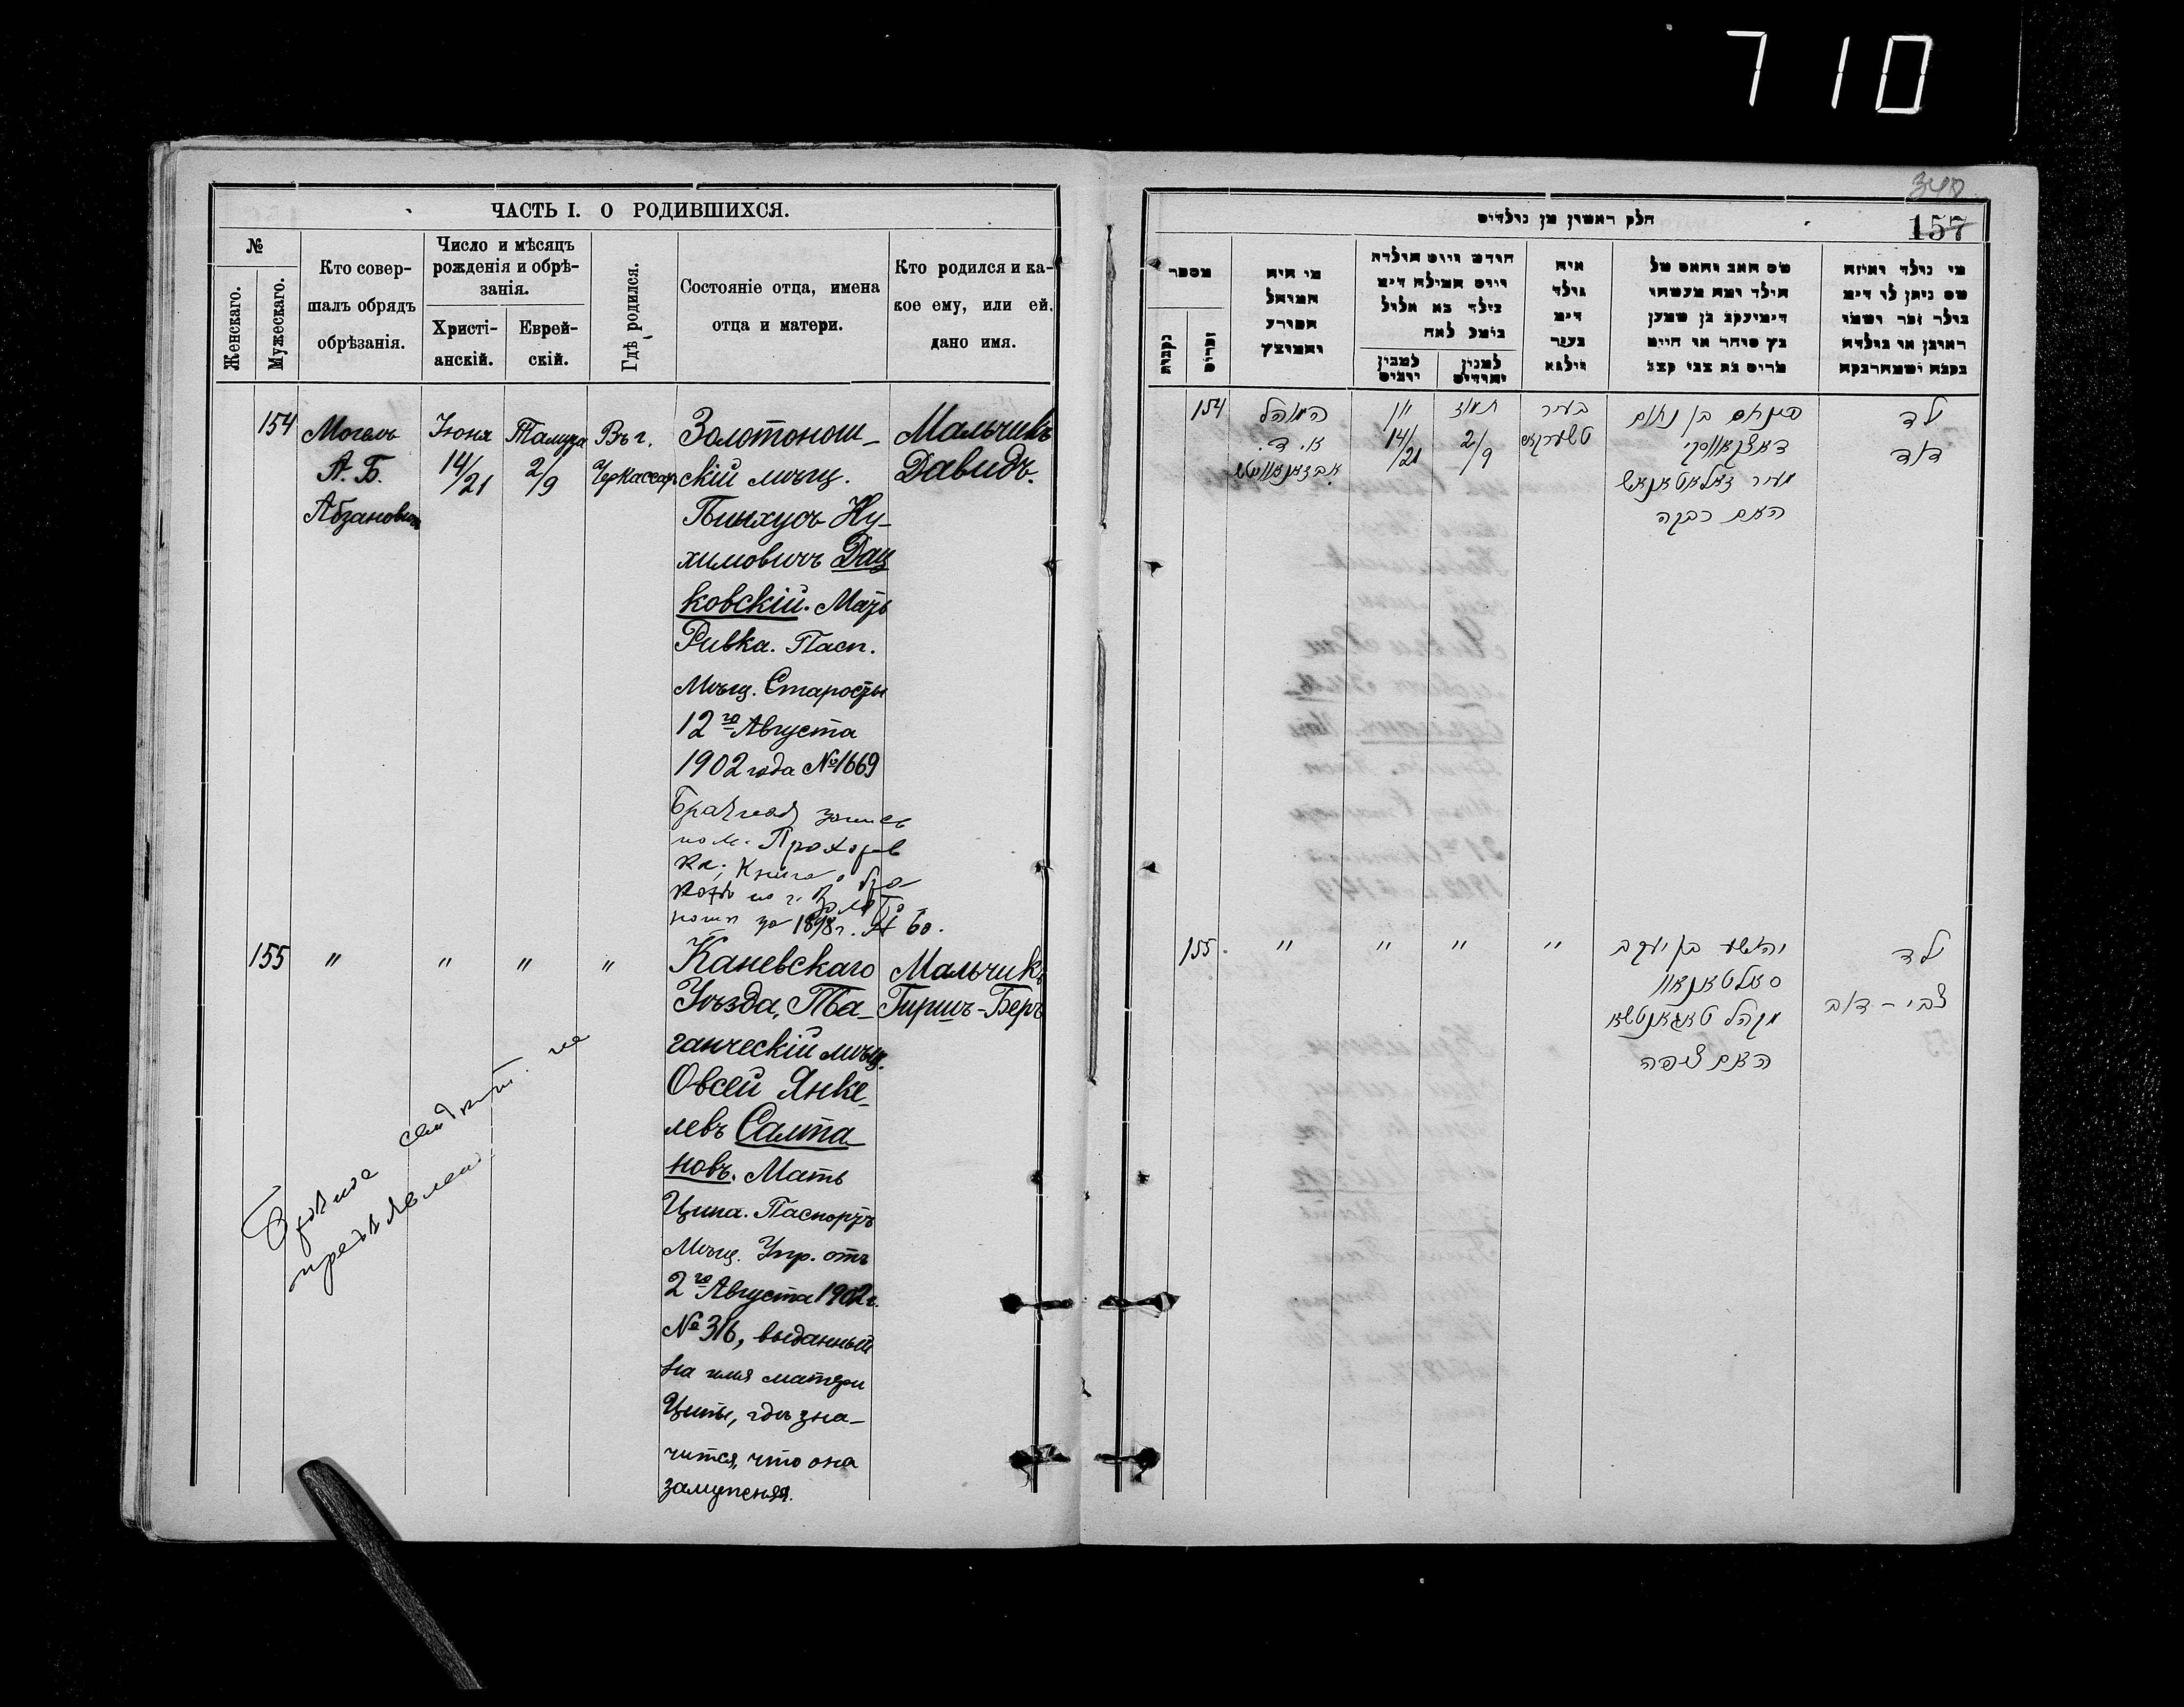 710
ЧАСТЬ I. О РОДИВШИХСЯ.
№
Женскаго.
Мужескаго.
Кто совер-
шалъ обрядъ
обрѣзанія.
Число и мѣсяцъ
рожденія и обрѣ-
занія.
Христі-
анскій.
Еврей-
скій.
Гдѣ родился.
Состояніе отца, имена
отца и матери.
Кто родился и ка-
кое ему, или ей,
дано имя.
154
Могелъ
А. Б.
Абзановичъ
Іюня
14/21
Тамуза
2/9
Въ г.
Черкассахъ
Золотонош-
скій мѣщ.
Пинхусъ Ну-
химовичъ Дац
ковскій. Мать
Ривка. Пасп.
Мѣщ. Старосты
12го Августа
1902 года № 1669
Брачная запись
по м. Прохоров
ка; Книга о бра
за 1898 г. № 60.
Мальчикъ
Давидъ.
155
" " " "
Каневскаго
Уѣзда, Та-
ганческій мѣщ.
Овсей Янке-
левъ Салта-
новъ. Мать
Ципа. Паспортъ
Мѣщ. Упр. отъ
2го Августа 1902 г.
№ 316, выданный
на имя матери
Ципы, гдѣ зна-
чится, что она
замужняя.
Мальчикъ
Гиршъ-Беръ
не
предъявлено
340
157
חלק ראשון מן נולדים
מספר
נקבות
זכרים
מי היה
המוהל
והמוצץ
חודש ויום הולדת
ויום המילה
למנין
יונים
למנין
יהודים
איה
נולד
שם האב והאם של
הילד ומה מעשהו
מי נולד ואיזה
שם ניתן לו
154
המוהל
א. ד.
אבזאנאוויטש
יוני
14/21
תמוז
2/9
בעיר
טשערקאס
פינחס בן נחום
דאצקאווסקי
מעיר זאלאטאנאש
האם רבקה
ילד
דוד
155
" " " "
יהושע בן יעקב
סאלטאנאוו
מקהל טאגאנטשא
האם ציפה
ילד
צבי-דוב